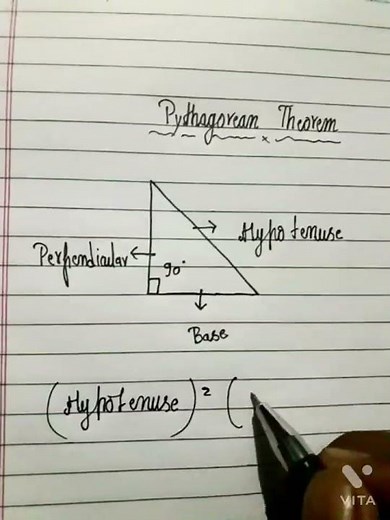 Pythagorean Theorem
Hypotenuse
Perpendicular
90°
Base
(Hypotenuse)² (
VITA